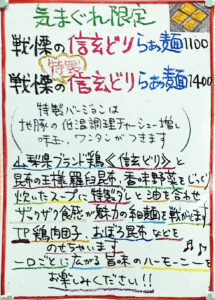 気まぐれ限定
戦慄の信玄どりらぁ麺1100
特製
戦慄の信玄どりらぁ麺1400
特製バージョンは
地豚の低温調理チャーシュー増し
味玉、ワンタンがつきます
山梨県ブランド鶏《信玄どり》と
昆布の王様羅臼昆布、香味野菜をじっくり
炊いたスープに特製ダレと油を合わせ
ザクザク食感が魅力の細麺を載せます
TP 鶏肉団子、おぼろ昆布などを
のせちゃいます
一口ごとに広がる旨味のハーモニーを
お楽しみください!!